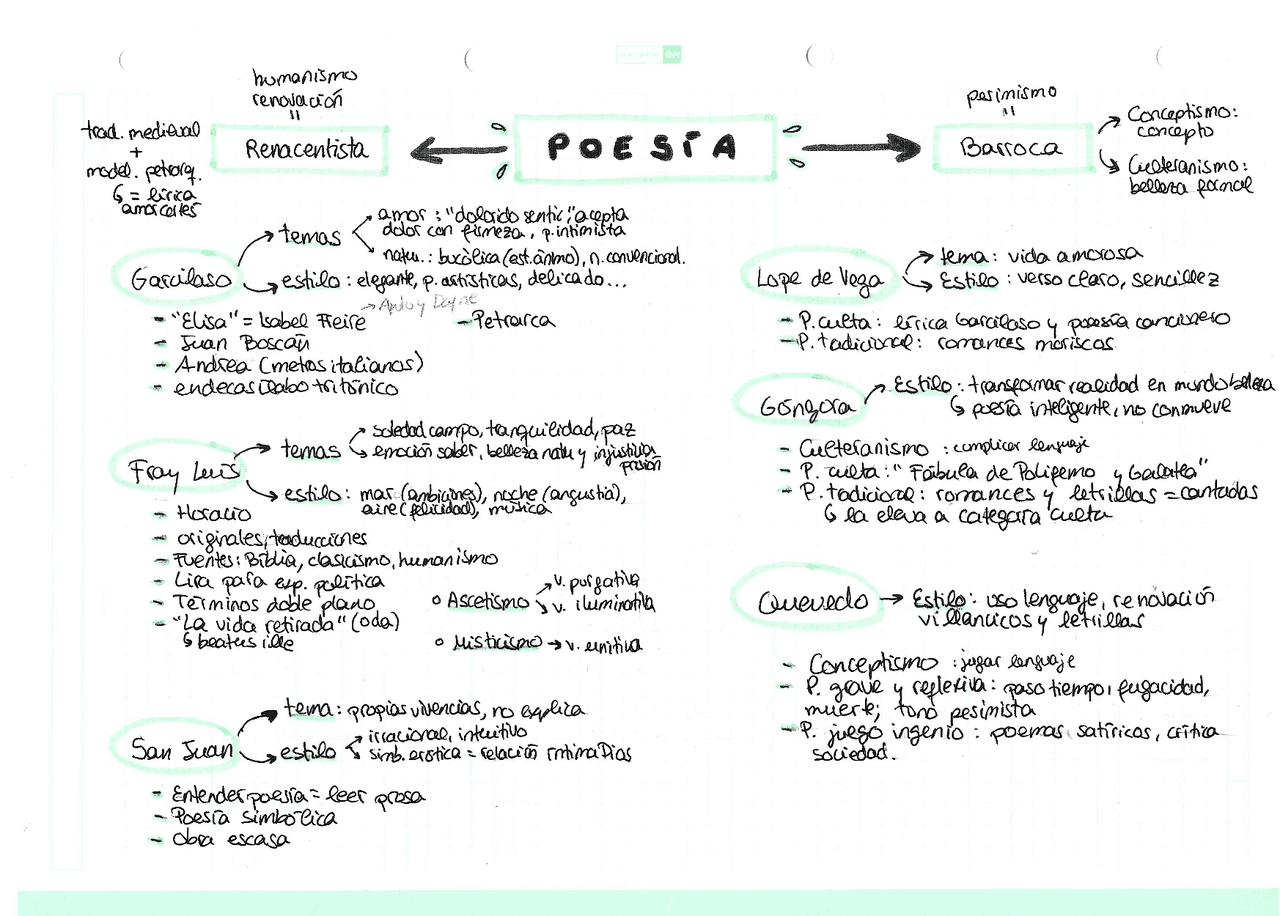 POESÍA
humanismo
renovación
=
Renacentista
trad. medieval
+
model. petrarq.
↳ = lírica
amor cortés
Garcilaso
temas
amor : "dolorido sentir", acepta
dolor con firmeza, p. intimista
natu. : bucólica (est. ánimo), n. convencional.
estilo : elegante, p. artísticas, delicado...
→ Apolo y Dafne
- "Elisa" = Isabel Freire
- Petrarca
- Juan Boscán
- Andrea (metros italianos)
- endecasílabo tritónico
Fray Luis
temas
soledad campo, tranquilidad, paz
emoción saber, belleza natu y injusticia
prisión
estilo : mar (ambiciones), noche (angustia),
aire (felicidad), música
- Horacio
- originales, traducciones
- Fuentes : Biblia, clasicismo, humanismo
- Lira para exp. política
- Términos doble plano
- "La vida retirada" (oda)
↳ beatus ille
o Ascetismo
v. purgativa
v. iluminativa
o Misticismo → v. unitiva
San Juan
tema : propias vivencias, no explica
estilo
irracional, intuitivo
simb. erótica = relación íntima Dios
- Entender poesía = leer prosa
- Poesía simbólica
- Obra escasa
pesimismo
=
Barroca
Conceptismo :
concepto
Culteranismo :
belleza formal
Lope de Vega
tema : vida amorosa
Estilo : verso claro, sencillez
- P. culta : lírica Garcilaso y poesía cancionero
- P. tadicional : romances moriscos
Góngora
Estilo : transformar realidad en mundo belleza
↳ poesía inteligente, no conmueve
- Culteranismo : complicar lenguaje
- P. culta : "Fábula de Polifemo y Galatea"
- P. tradicional : romances y letrillas = cantadas
↳ la eleva a categoría culta
Quevedo → Estilo : uso lenguaje, renovación
villancicos y letrillas
- Conceptismo : jugar lenguaje
- P. grave y reflexiva : paso tiempo, fugacidad,
muerte; tono pesimista
- P. juego ingenio : poemas satíricos, crítica
sociedad.